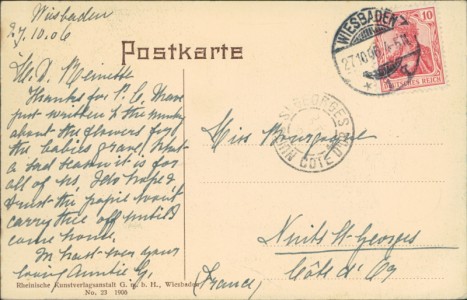 Wiesbaden
27.10.06
Postkarte
WIESBADEN
27.10.06
10
DEUTSCHES REICH
Thanks for P.C. I have
just written to the
about the flowers for
the babies grave, what
a sad season it is for
all of us, I do hope &
trust the papie won't
carry thee off until I
come home.
In haste ever your
loving Auntie G.
Miss
Nuits St Georges
Côte d'
(France)
Rheinische Kunstverlagsanstalt G. m. b. H., Wiesbaden
No. 23 1906